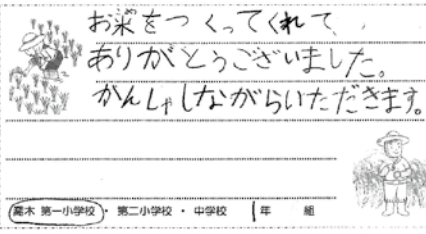 お米をつくってくれて、
ありがとうございました。
かんしゃしながらいただきます。
喬木 第一小学校 ・ 第二小学校 ・ 中学校 1年 組